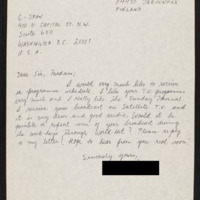 04430 JÄRVENPÄÄ
FINLAND
C-SPAN
400 N. CAPITOL ST. N.W.
SUITE 650
WASHINGTON D.C. 20001
U.S.A.
Dear Sir, Madam,
I would very much like to receive
a programme schedule. I like your T.V. programmes
very much and I really like the Sunday Journal.
I receive your broadcast on Satellite T.V. and it
is very clear and good audio. Would it be
possible a repeat some of your broadcast during
the week days through World net? Please reply
to my letter! Hope to hear from you real soon!
Sincerely yours,